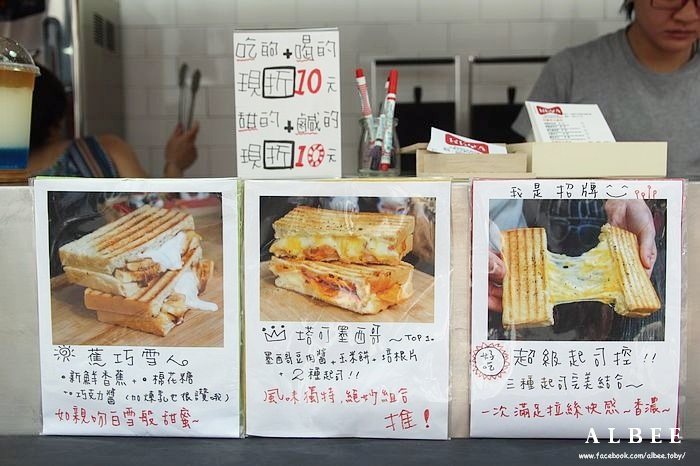 吃的+喝的
現折10元
甜的+鹹的
現折10元
蕉巧雪人
•新鮮香蕉+•棉花糖
•巧克力醬(加煉乳也很讚哦)
如親吻白雪般甜蜜~
塔可墨西哥~TOP1.
墨西哥豆肉醬+玉米餅+培根片
+2種起司!!
風味獨特 絕妙組合
推!
我是招牌
好吃
超級起司控!!
三種起司完美結合~
一次滿足拉絲快感~香濃~
ALBEE
www.facebook.com/albee.toby/